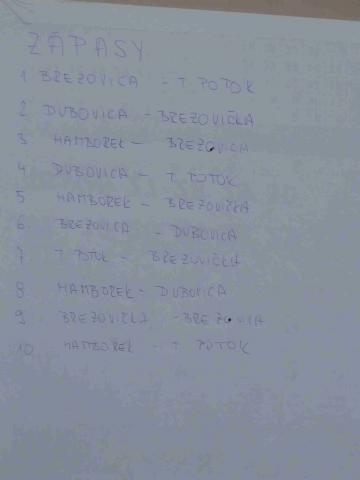 ZÁPASY
1 BREZOVICA - T POTOK
2 DUBOVICA - BREZOVIČKA
3 HAMBOREK - BREZOVICA
4 DUBOVICA - T. POTOK
5 HAMBOREK - BREZOVIČKA
6 BREZOVICA - DUBOVICA
7 T POTOK - BREZOVIČKA
8 HAMBOREK - DUBOVICA
9 BREZOVIČKA - BREZOVICA
10 HAMBOREK - T. POTOK